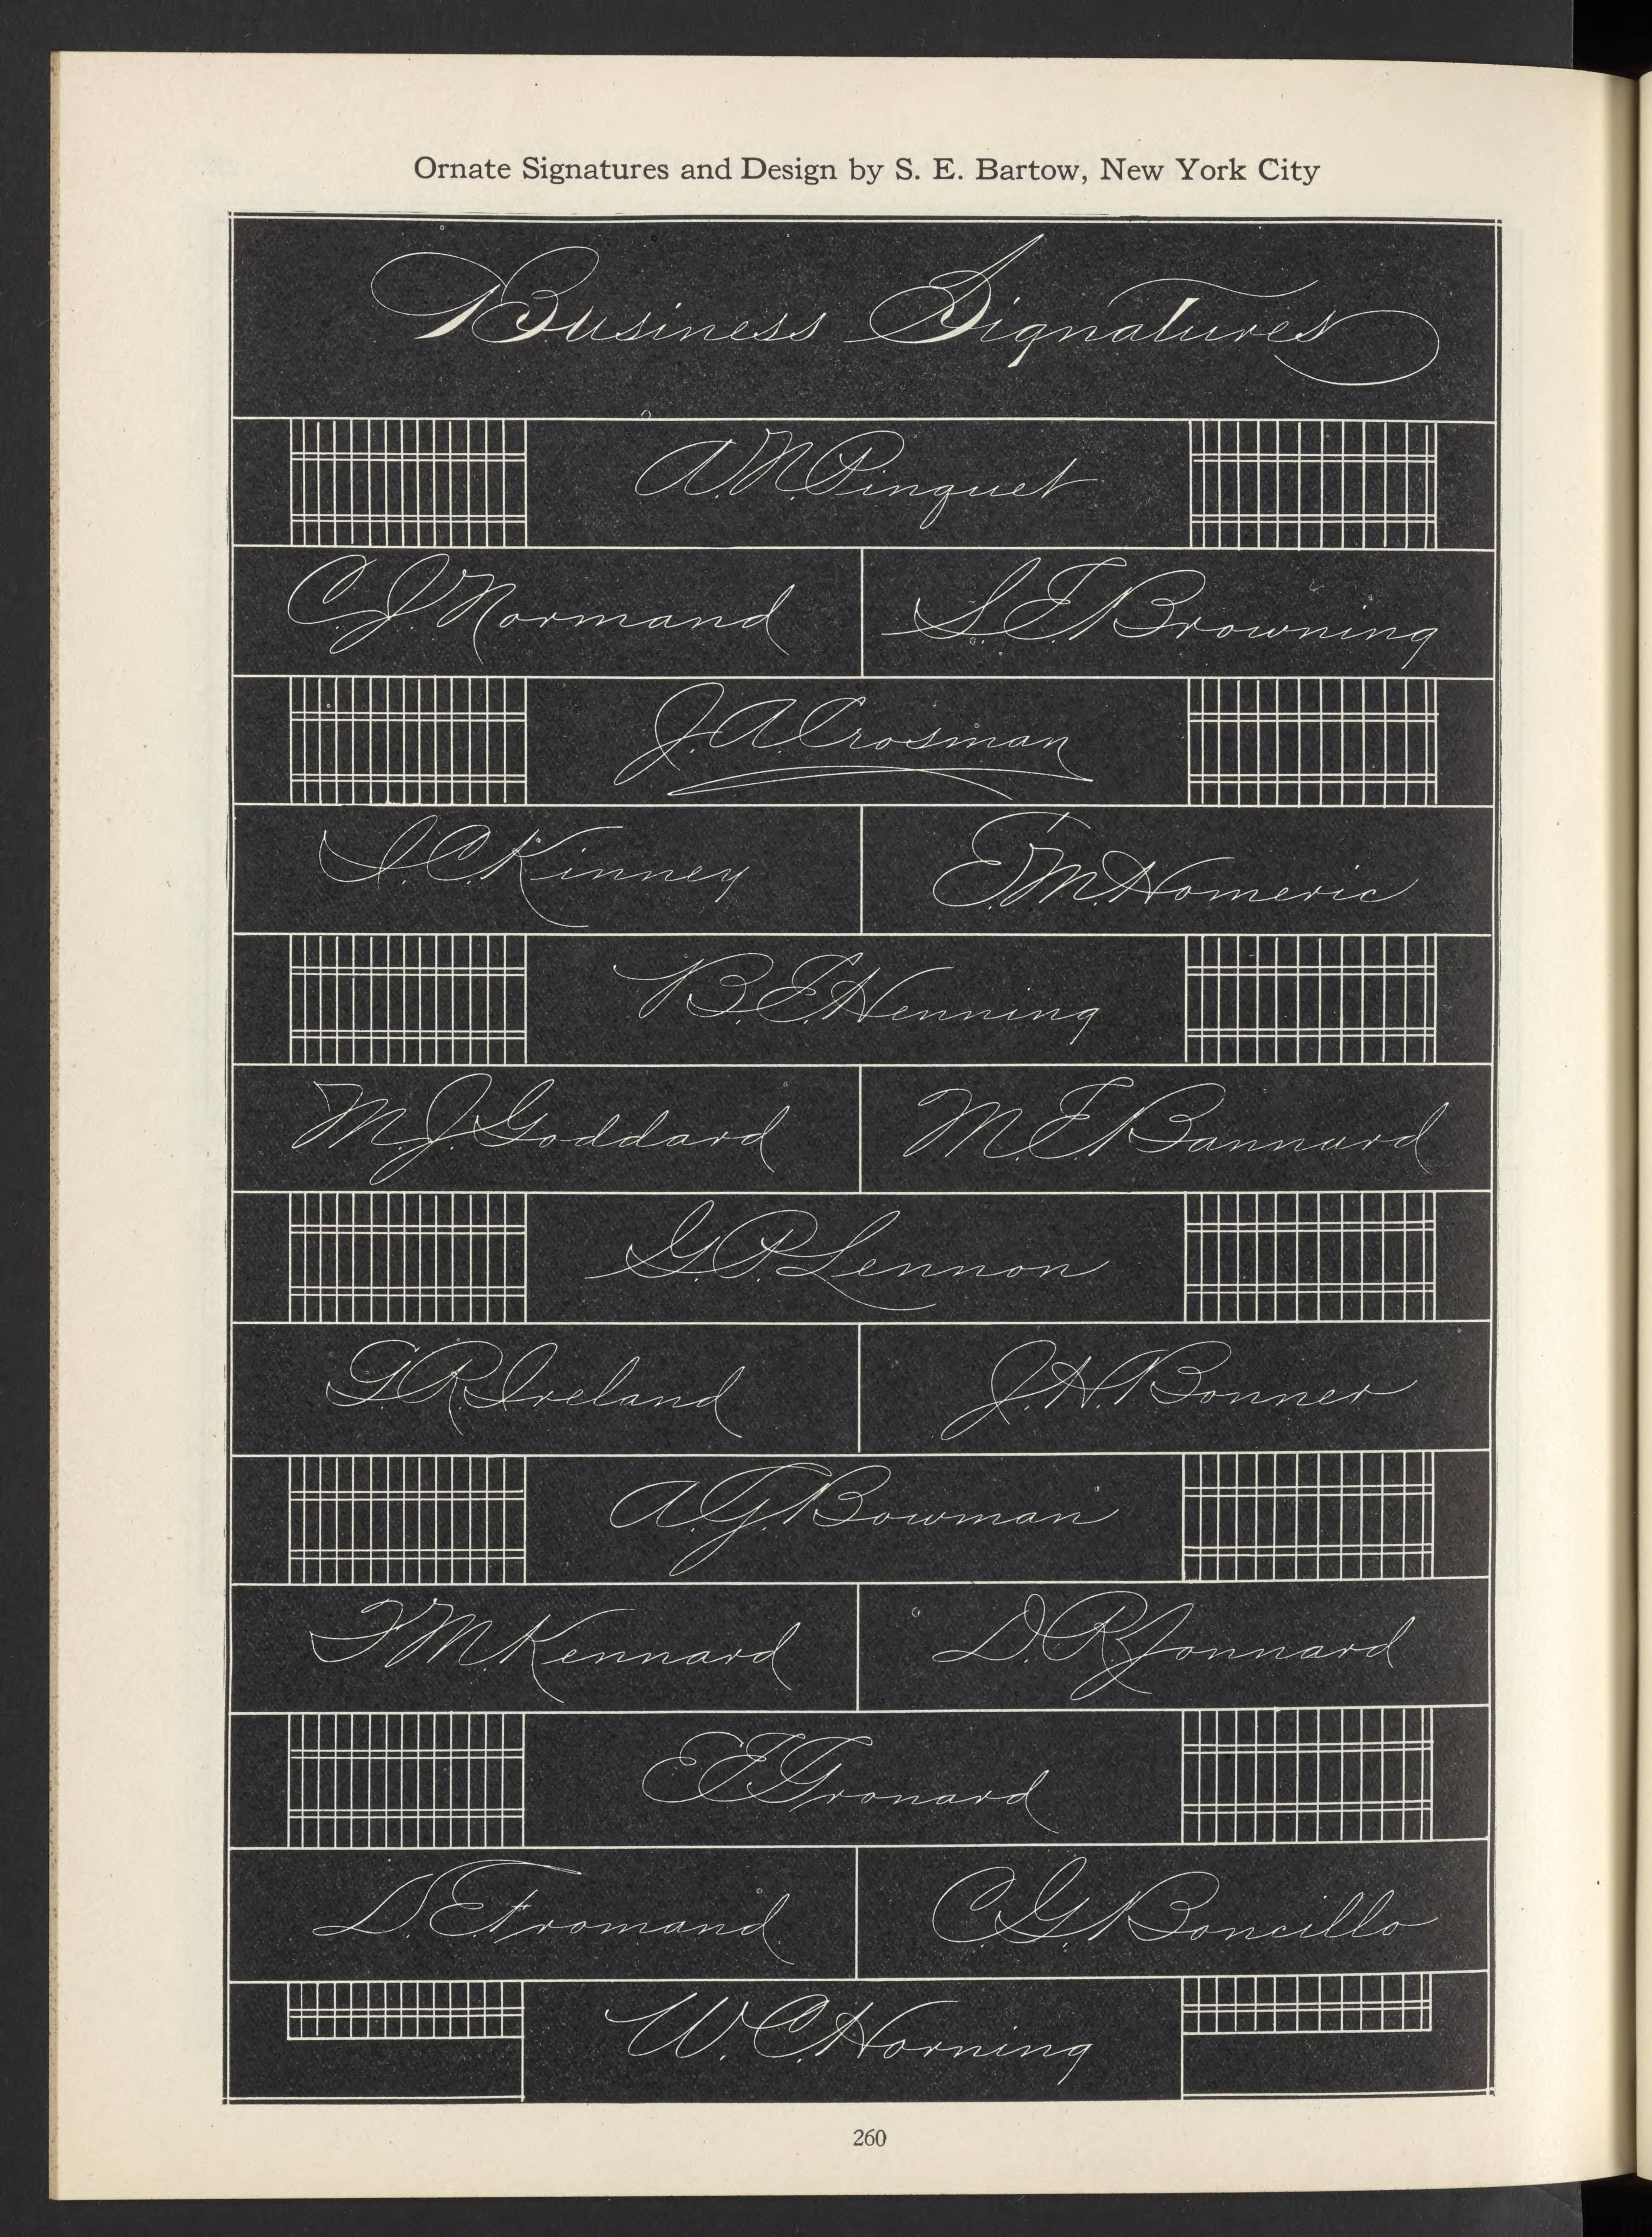 Ornate Signatures and Design by S. E. Bartow, New York City
Business Signatures
A. N. Pinguet
C. J. Normand
S. E. Browning
J. A. Crosman
I. C. Kinney
E. M. Homeric
B. E. Henning
M. J. Goddard
M. E. Bannard
G. P. Lennon
G. R. Ireland
J. H. Bonner
A. G. Bowman
F. M. Kennard
D. R. Jonnard
D. E. Fromand
C. G. Boncillo
W. C. Horning
260